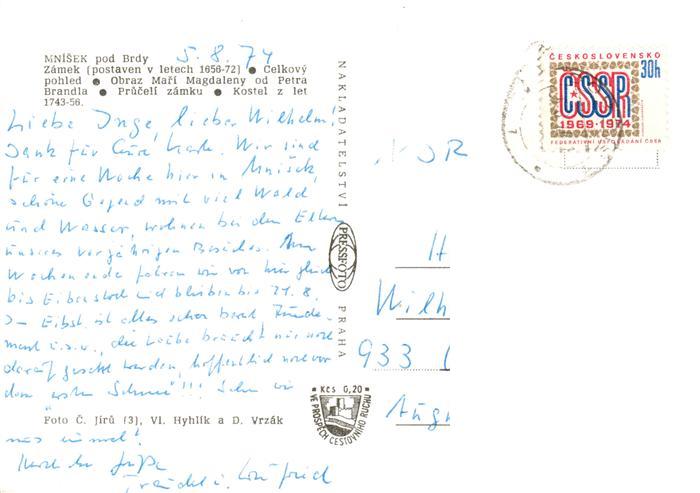 MNÍŠEK pod Brdy
5.8.74
Zámek (postaven v letech 1656-72) ● Celkový
pohled ● Obraz Maří Magdaleny od Petra
Brandla ● Průčelí zámku ● Kostel z let
1743-56.
Liebe Inge, lieber Wilhelm!
Dank für Eure Karte. Wir sind
für eine Woche hier in Mníšek,
schöne Gegend mit viel Wald
und Wasser, wohnen bei den Eltern
unseres vorjährigen Besuches. Am
Wochenende fahren wir von hier gleich
bis Eibenstock und bleiben bis 21.8.
In Eibst. ist alles schon bereit, Funda-
ment u.s.w., die Laube braucht nur noch
darauf gesetzt werden, hoffentlich noch vor
dem ersten Schnee!!! Sehen wir
uns einmal?
Herzliche Grüße
Foto Č. Jírů (3), Vl. Hyhlík a D. Vrzák
NAKLADATELSTVÍ
PRESSFOTO
PRAHA
Kčs 0,20
VE PROSPĚCH CESTOVNÍHO RUCHU
ČESKOSLOVENSKO
30h
ČSSR
1969-1974
FEDERATIVNÍ USPOŘÁDÁNÍ ČSSR
H
Wilh
933